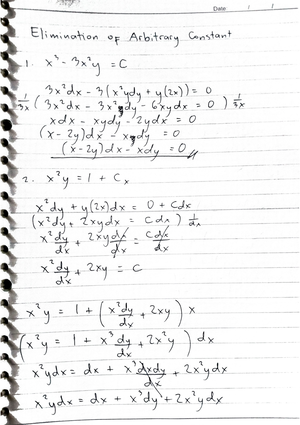 Date: / /
Elimination of Arbitrary Constant
1. x³ - 3x²y = C
3x²dx - 3(x²dy + y(2x)) = 0
1/3x (3x²dx - 3x²dy - 6xydx = 0) 1/3x
xdx - xdy - 2ydx = 0
(x-2y)dx - xdy = 0
(x-2y)dx - xdy = 0
2. x²y = 1 + Cx
x²dy + y(2x)dx = 0 + Cdx
(x²dy + 2xydx = Cdx) 1/dx
x²dy/dx + 2xydx/dx = Cdx/dx
x²dy/dx + 2xy = C
x²y = 1 + (x²dy/dx + 2xy) x
(x²y = 1 + x³dy/dx + 2x²y) dx
x²ydx = dx + x³dxdy/dx + 2x²ydx
x²ydx = dx + x³dy + 2x²ydx